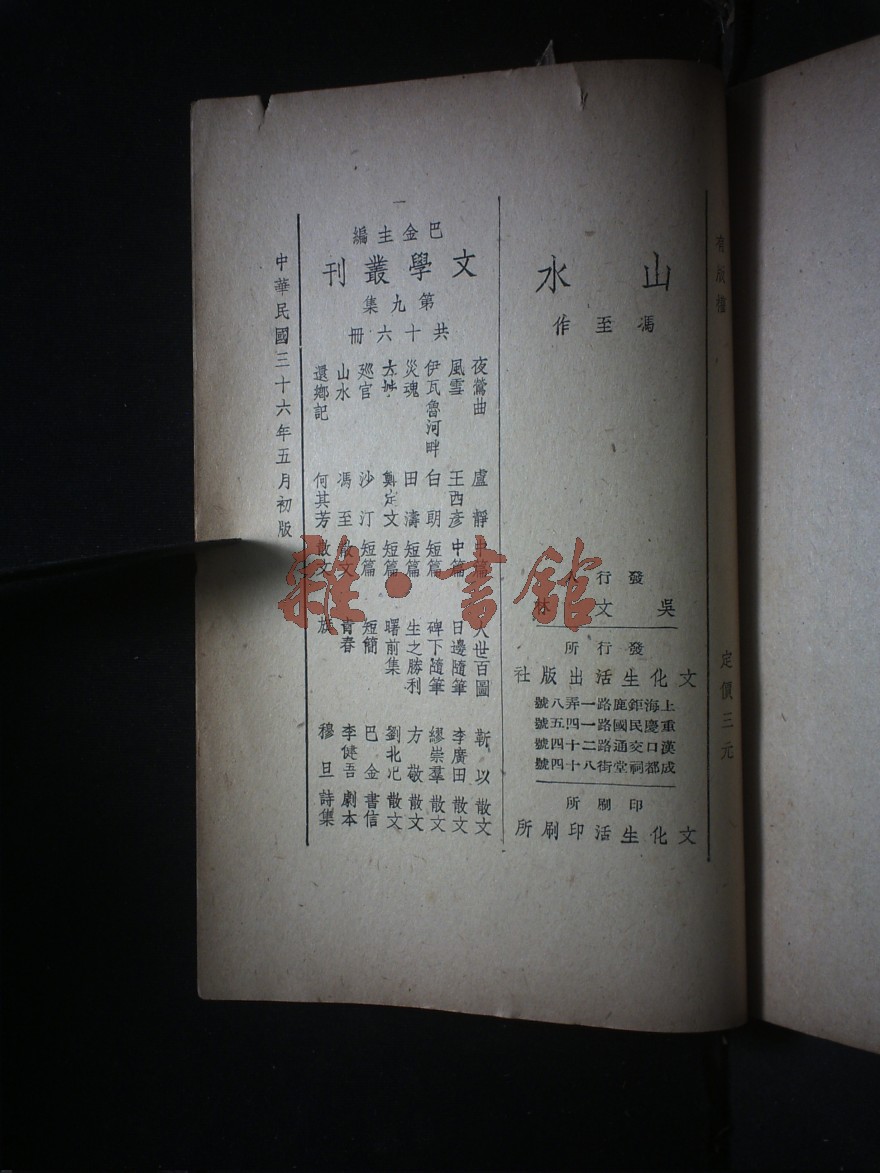 有版權
定價三元
山水
馮至作
發行人
吳文林
發行所
文化生活出版社
上海鉅鹿路一弄八號
重慶民國路一四五號
漢口交通路二十四號
成都祠堂街八十四號
印刷所
文化生活印刷所
巴金主編
文學叢刊
第九集
共十六冊
夜鶯曲 盧靜 中篇
風雪 王西彥 中篇
伊瓦魯河畔 白朗 短篇
災魂 田濤 短篇
大姊 鄭定文 短篇
巡官 沙汀 短篇
山水 馮至 散文
還鄉記 何其芳 散文
人世百圖 靳以 散文
日邊隨筆 李廣田 散文
碑下隨筆 繆崇羣 散文
生之勝利 方敬 散文
曙前集 劉北汜 散文
短簡 巴金 書信
青春 李健吾 劇本
旗 穆旦 詩集
中華民國三十六年五月初版
雜·書館